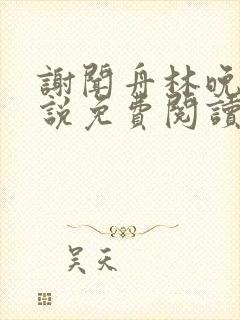 謝聞舟林晚
説免費閱讀
吴天